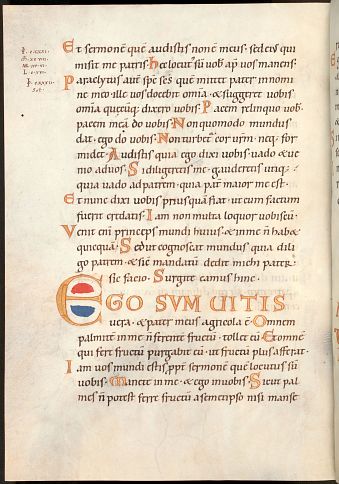 Et sermonē quē audistis non ē meus. sed eiꝰ qui
misit me patris. hec locutꝰ sū uob apᵈ uos manens.
Paraclytus aut sp̄c sc̄s quē mittet pater in nomi
ne meo ille uos docebit om̄ia. & suggeret uobis
om̄ia quecūq; dixero uobis. Pacem relinquo uob.
pacem meā do uobis. Non quomodo mundus
dat. ego do uobis. Non turbet̄ cor ur̄m. neq; for
midet. Audistis quia ego dixi uobis. uado & ue
nio ad uos. Si diligeretis me. gauderetis utiq;
quia uado ad patrem. quia pat̄ maior me est.
Et nunc dixi uobis priusquā fiat. ut cum factum
fuerit credatis. Iam non multa loquor uobiscū.
Venit eni princeps mundi huius. & in me n̄ hab&
quicquā. Sed ut cognoscat mundus quia dili
go patrem. & sic mandatū dedit michi pater.
sic facio. Surgite eamus hinc.
EGO SVM UITIS
uera. & pater meus agricola ē. Omnem
palmitē in me n̄ ferentē fructū. tollet eū. Et omnē
qui fert fructū purgabit eū. ut fructū plus afferat.
Iam uos mundi estis. ppt̄ sermonē quē locutus sū
uobis. Manete in me. & ego in uobis. Sicut pal
mes n̄ potest ferre fructū a semetipso nisi manse